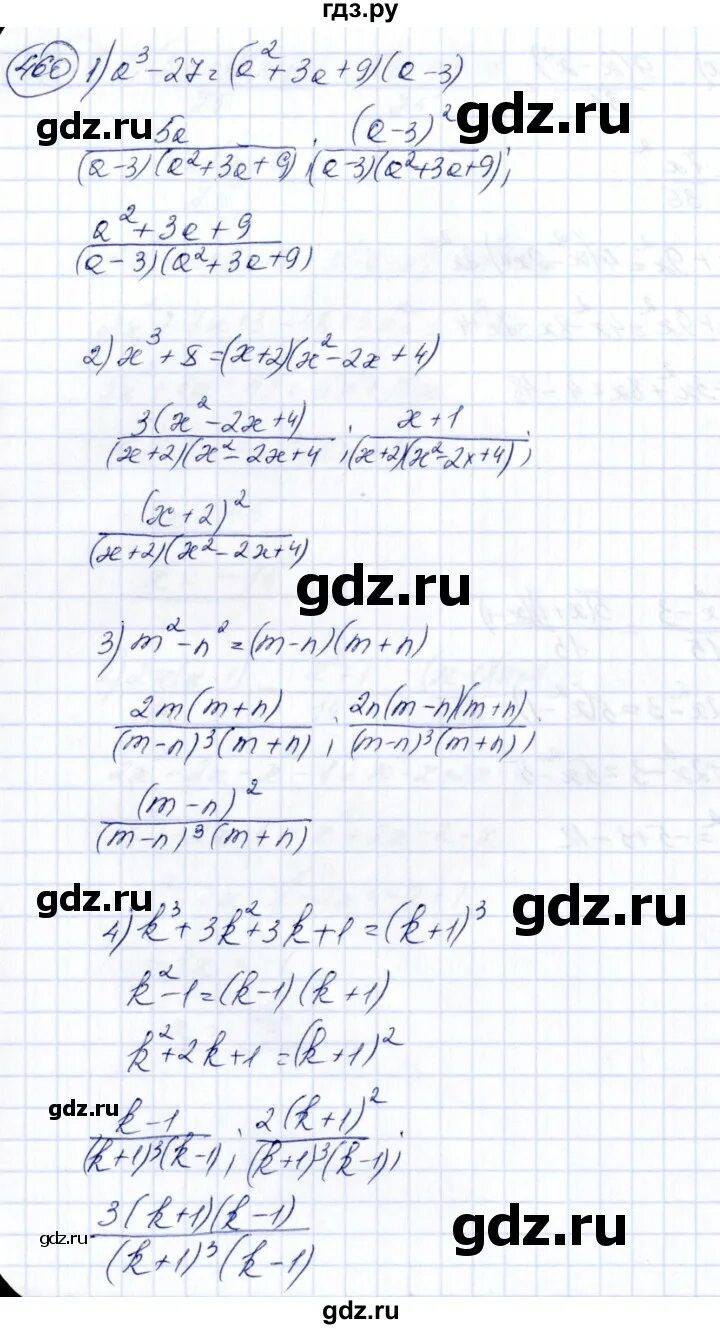 гдз.ру
460 1) a³ - 27 = (a² + 3a + 9)(a - 3)
gdz.ru gdz.ru
5a/((a-3)(a²+3a+9)); (a-3)²/((a-3)(a²+3a+9));
(a²+3a+9)/((a-3)(a²+3a+9))
2) x³ + 8 = (x+2)(x² - 2x + 4)
3(x² - 2x + 4)/((x+2)(x² - 2x + 4; (x+1)/((x+2)(x² - 2x + 4));
(x+2)²/((x+2)(x² - 2x + 4))
gdz.ru
3) m² - n² = (m-n)(m+n)
2m(m+n)/((m-n)³(m+n)); 2n(m-n)(m+n)/((m-n)³(m+n));
(m-n)²/((m-n)³(m+n))
gdz.ru gdz.ru
4) k³ + 3k² + 3k + 1 = (k+1)³
k² - 1 = (k-1)(k+1)
k² + 2k + 1 = (k+1)²
gdz.ru
(k-1)/((k+1)³(k-1)); 2(k+1)²/((k+1)³(k-1));
3(k+1)(k-1)/((k+1)³(k-1))
gdz.ru gdz.ru
gdz.ru